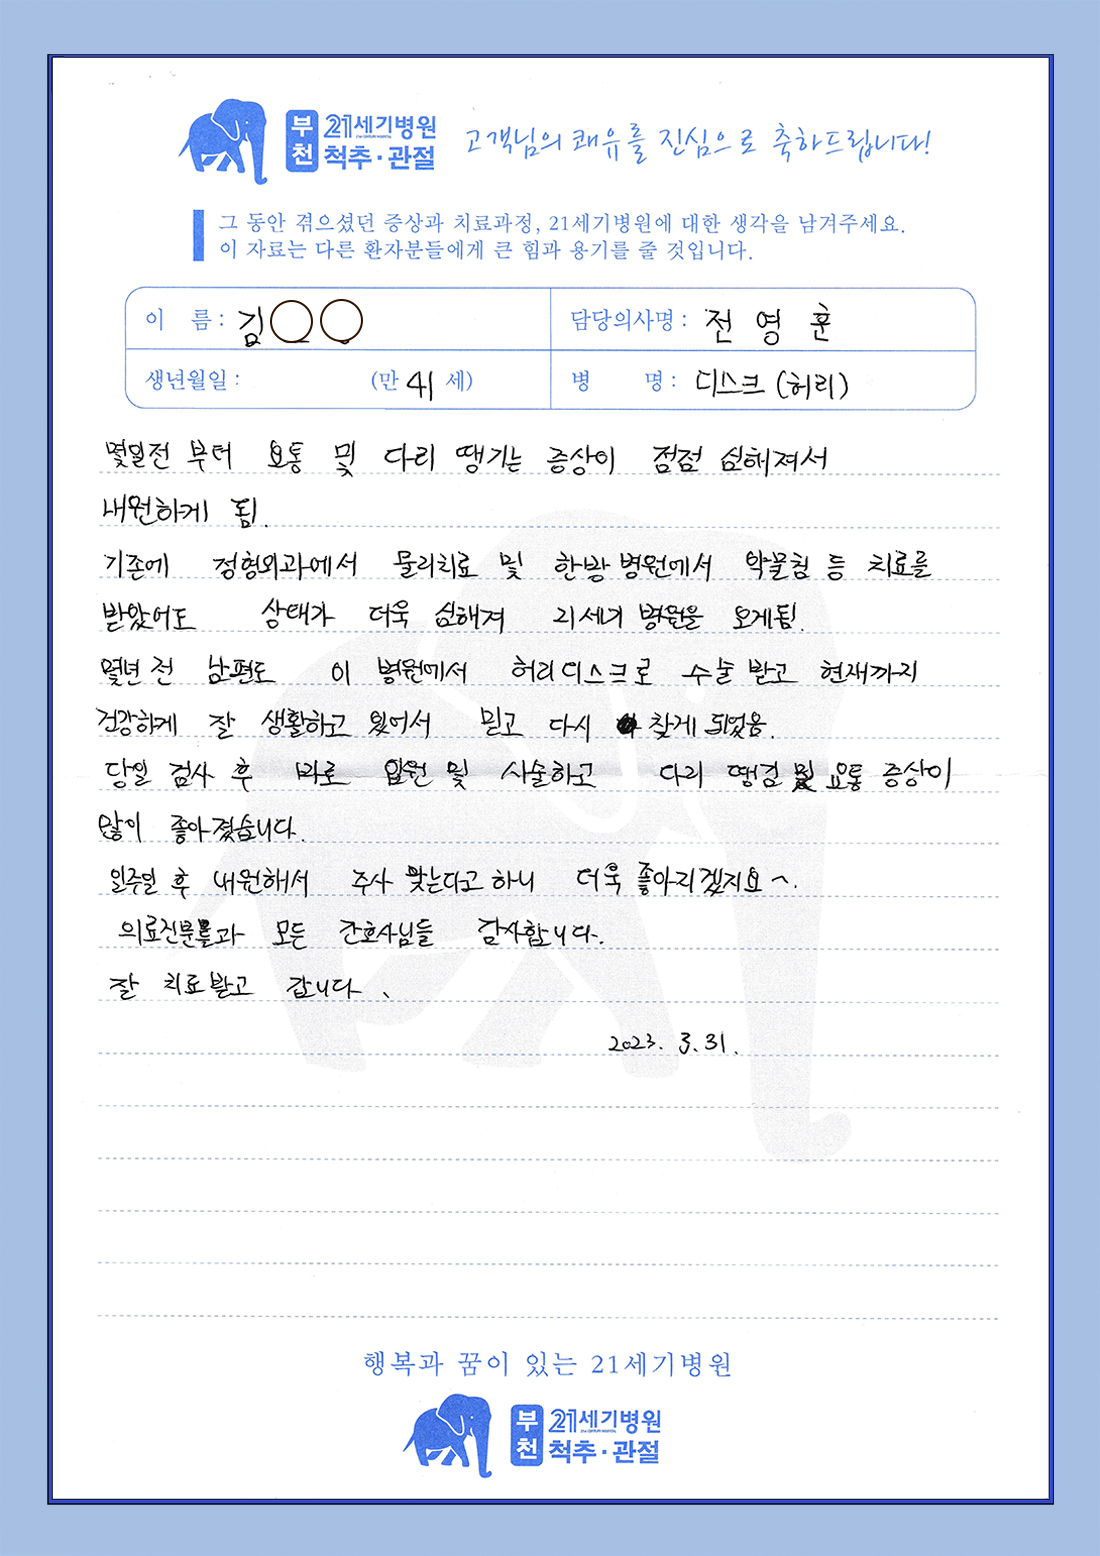 부천 21세기병원 척추·관절 고객님의 쾌유를 진심으로 축하드립니다!
그 동안 겪으셨던 증상과 치료과정, 21세기병원에 대한 생각을 남겨주세요.
이 자료는 다른 환자분들에게 큰 힘과 용기를 줄 것입니다.
이 름 : 김○○ 담당의사명 : 전영훈
생년월일 : (만 41 세) 병 명 : 디스크 (허리)
몇일전 부터 요통 및 다리 땡기는 증상이 점점 심해져서
내원하게 됨.
기존에 정형외과에서 물리치료 및 한방병원에서 약물침 등 치료를
받았어도 상태가 더욱 심해져 21세기 병원을 오게됨.
몇년 전 남편도 이 병원에서 허리디스크로 수술 받고 현재까지
건강하게 잘 생활하고 있어서 믿고 다시 찾게 되었음.
당일 검사 후 바로 입원 및 시술하고 다리 땡김 및 요통 증상이
많이 좋아졌습니다.
일주일 후 내원해서 주사 맞는다고 하니 더욱 좋아지겠지요~.
의료진분들과 모든 간호사님들 감사합니다.
잘 치료받고 갑니다.
2023. 3. 31.
행복과 꿈이 있는 21세기병원
부천 21세기병원 척추·관절